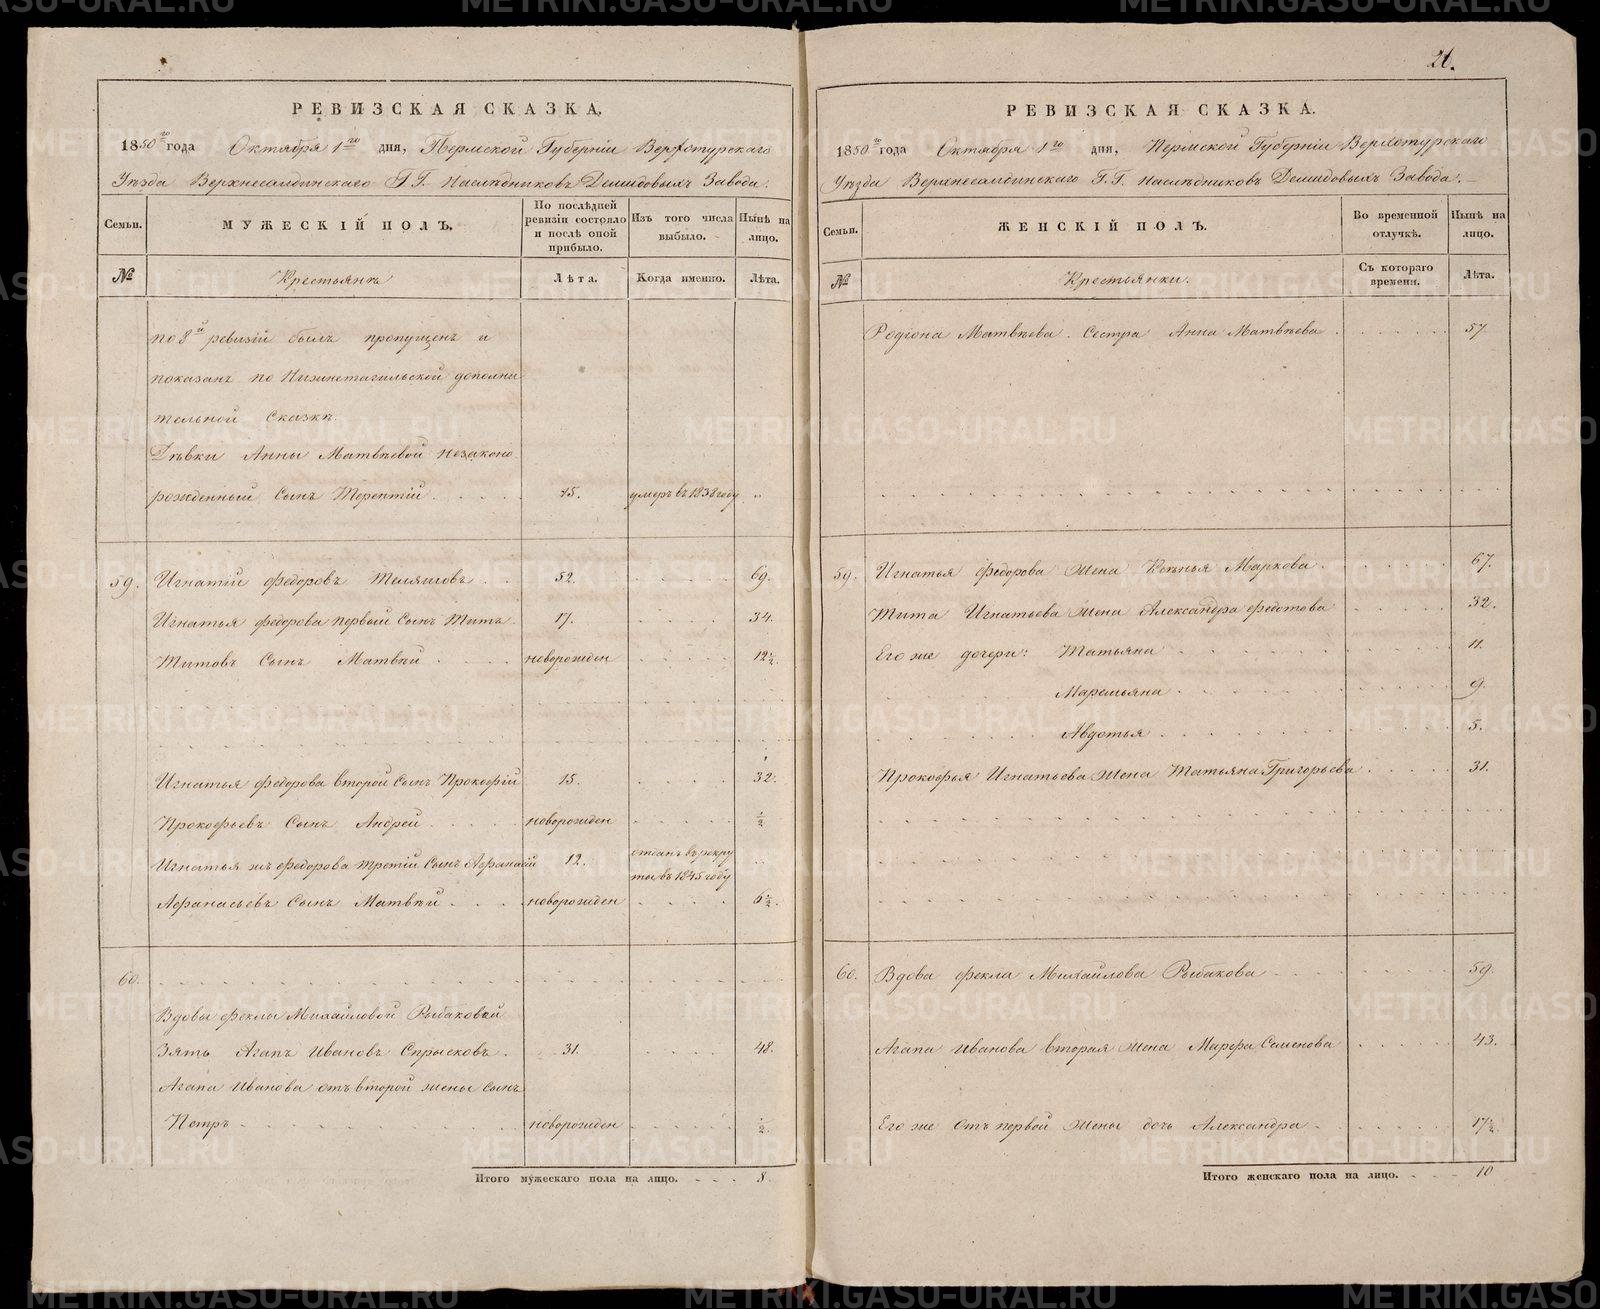 РЕВИЗСКАЯ СКАЗКА,
1850го года Октября 1го дня, Пермской Губерніи Верхотурскаго
Уѣзда Верхнесалдинскаго Г.Г. Наслѣдниковъ Демидовыхъ Завода.
Семьи.
МУЖЕСКІЙ ПОЛЪ.
По послѣдней ревизіи состояло и послѣ оной прибыло.
Изъ того числа выбыло.
Нынѣ на лицо.
№
Крестьянъ
Лѣта.
Когда именно.
Лѣта.
по 8й ревизіи былъ пропущенъ и
показанъ по Нижнетагильской дополни
тельной Сказкѣ.
Дѣвки Анны Матвѣевой незаконо
рожденный Сынъ Терентій 15. умеръ въ 1838 году „
59. Игнатій Федоровъ Телятовъ 52. 69.
Игнатья Федорова первый Сынъ Титъ 17. 34.
Титовъ Сынъ Матвѣй новорожден 12½.
Игнатья Федорова второй Сынъ Прокофій 15. 32.
Прокофьевъ Сынъ Андрей новорожден ½
Игнатья жъ Федорова третій Сынъ Афанасій 12. отданъ въ рекру
ты въ 1845 году
Афанасьевъ Сынъ Матвѣй новорожден 6½.
60.
Вдовы Феклы Михайловой Рыбаковой
Зять Агапъ Ивановъ Спрысковъ. 31. 48.
Агапа Иванова отъ второй жены Сынъ
Петръ новорожден ½.
Итого мужескаго пола на лицо. 8.
21.
РЕВИЗСКАЯ СКАЗКА.
1850го года Октября 1го дня, Пермской Губерніи Верхотурскаго
Уѣзда Верхнесалдинскаго Г.Г. Наслѣдниковъ Демидовыхъ Завода.
Семьи.
ЖЕНСКІЙ ПОЛЪ.
Во временной отлучкѣ.
Нынѣ на лицо.
№
Крестьянки.
Съ котораго времени.
Лѣта.
Родіона Матвѣева. Сестра Анна Матвѣева. 57.
59. Игнатья Федорова жена Ксѣнья Маркова. 67.
Тита Игнатьева жена Александра Федотова 32.
Его же дочери: Татьяна 11.
Маремьяна 9.
Авдотья 5.
Прокофья Игнатьева жена Татьяна Григорьева 31.
60. Вдова Фекла Михайлова Рыбакова 59.
Агапа Иванова вторая жена Марфа Семенова 43.
Его же отъ первой жены дочь Александра 17½.
Итого женскаго пола на лицо. 10
METRIKI.GASO-URAL.RU